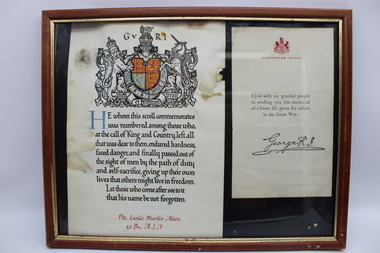 G V R I
HE whom this scroll commemorates
was numbered among those who,
at the call of King and Country, left all
that was dear to them, endured hardness,
faced danger, and finally passed out of
the sight of men by the path of duty
and self-sacrifice, giving up their own
lives that others might live in freedom.
Let those who come after see to it
that his name be not forgotten.
Pte. Leslie
Allen
50 Bn. A.I.F.
BUCKINGHAM PALACE
I join with my grateful people
in sending you this memorial
of a brave life given for others
in the Great War.
George R.I.